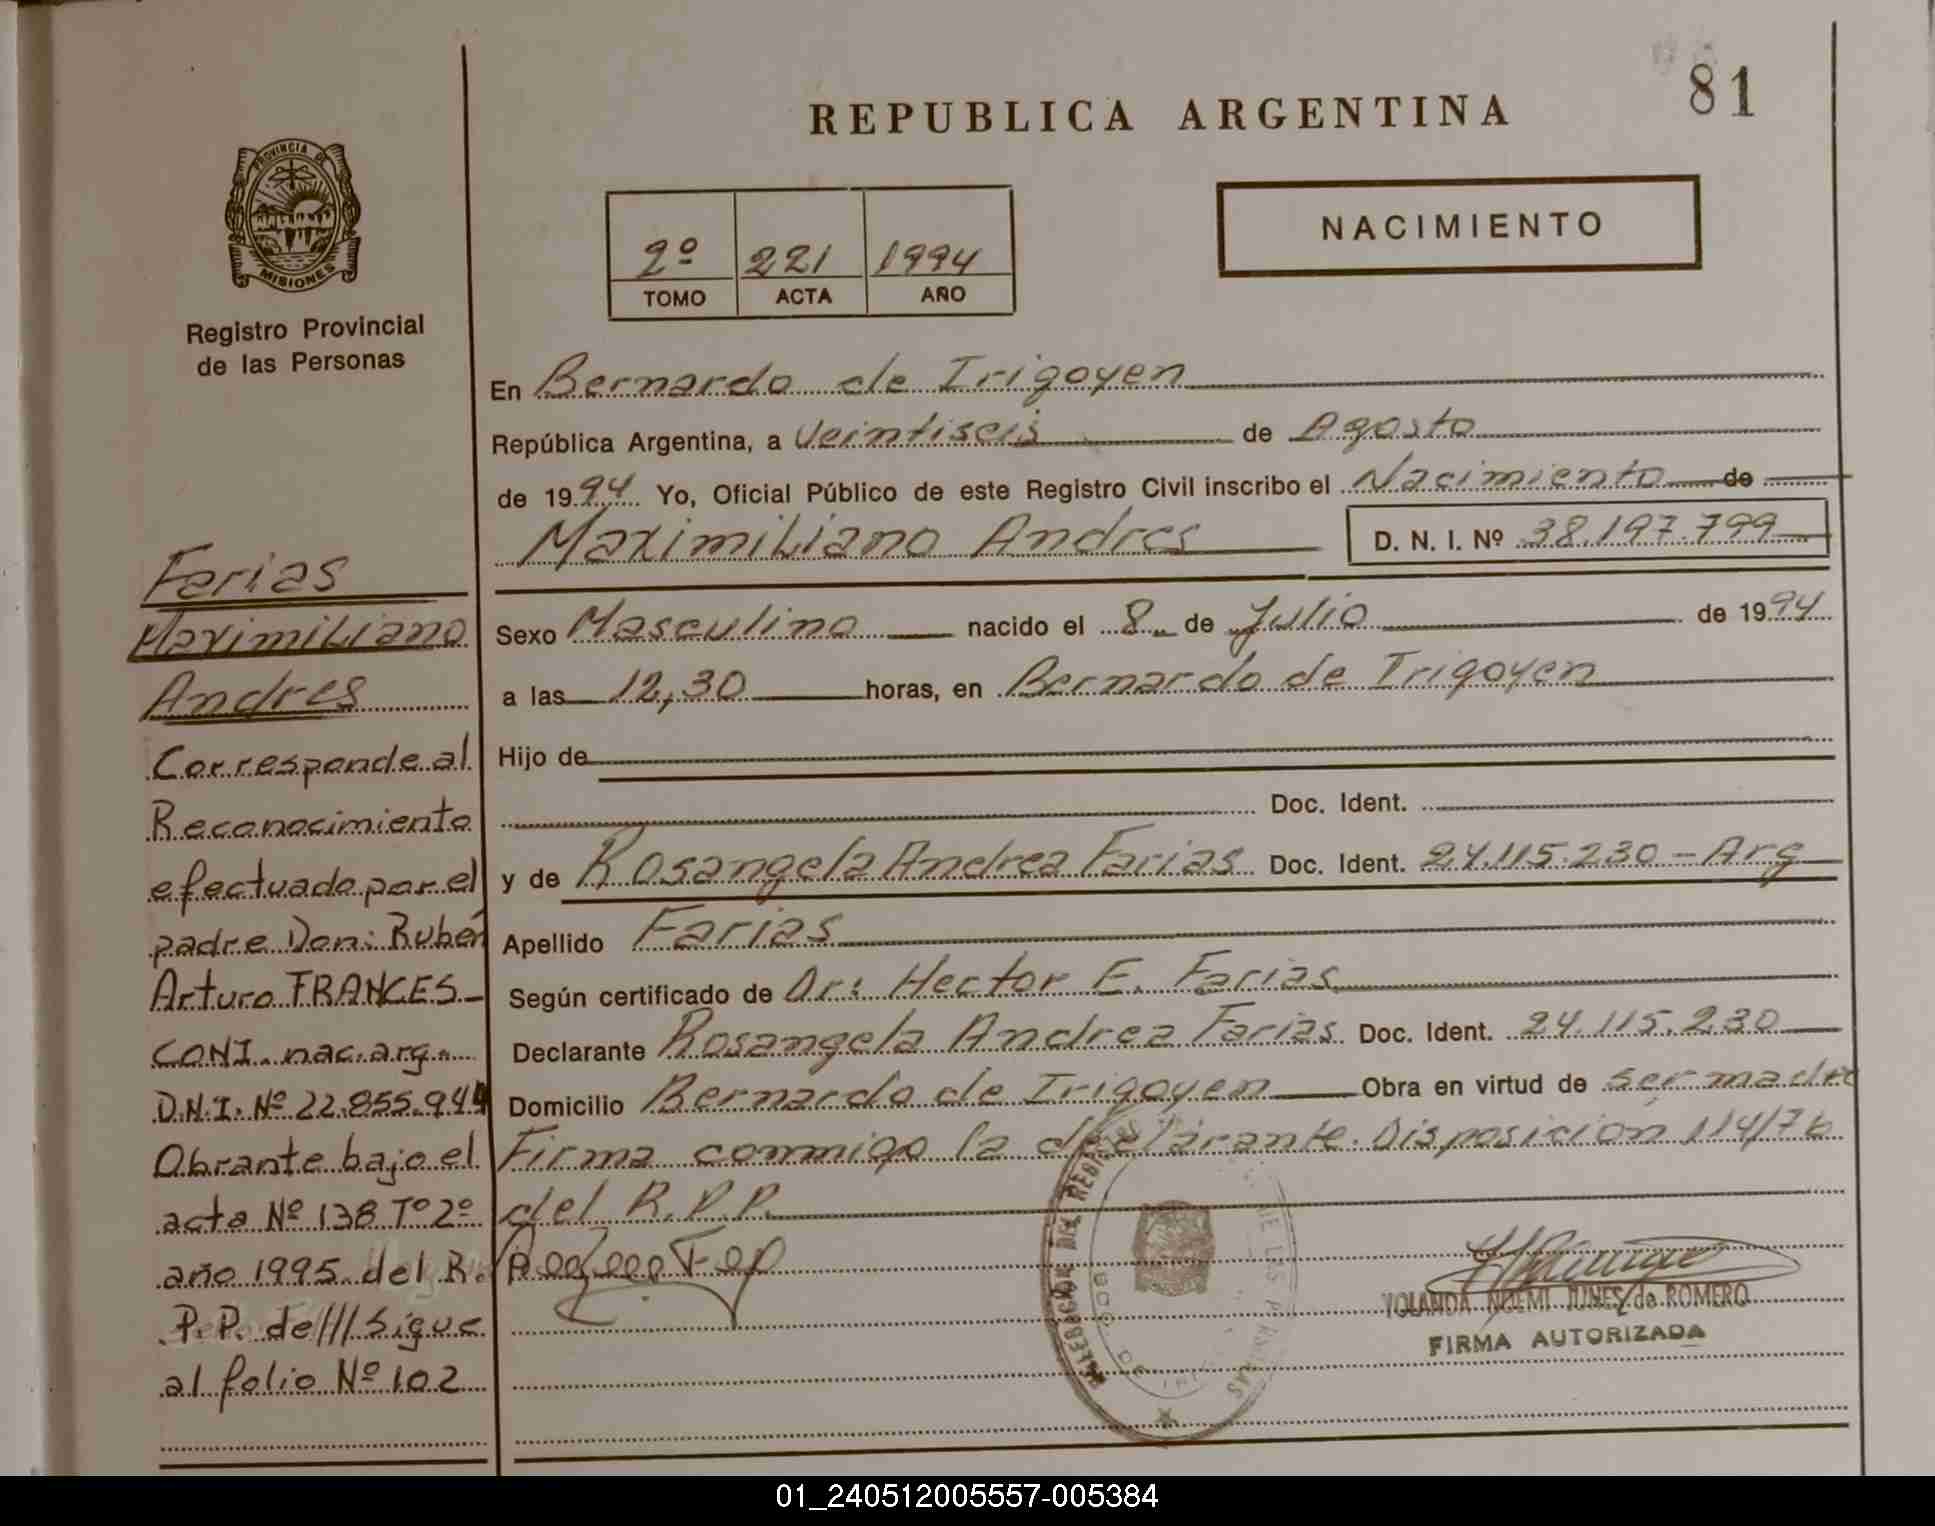 81
REPUBLICA ARGENTINA
PROVINCIA DE
MISIONES
Registro Provincial
de las Personas
2º 221 1994
TOMO ACTA AÑO
NACIMIENTO
En Bernardo de Irigoyen
República Argentina, a Veintiseis de Agosto
de 1994 Yo, Oficial Público de este Registro Civil inscribo el Nacimiento de
Maximiliano Andres D. N. I. Nº 38.197.799
Sexo Masculino nacido el 8 de Julio de 1994
a las 12,30 horas, en Bernardo de Irigoyen
Hijo de
Doc. Ident.
y de Rosangela Andrea Farias Doc. Ident. 24.115.230 - Arg
Apellido Farias
Según certificado de Dr: Hector E. Farias
Declarante Rosangela Andrea Farias Doc. Ident. 24.115.230
Domicilio Bernardo de Irigoyen Obra en virtud de ser madre
Firma conmigo la declarante. Disposición 114/76
del R.P.P.
YOLANDA NOEMI JUNES de ROMERO
FIRMA AUTORIZADA
Farias
Maximiliano
Andres
Corresponde al
Reconocimiento
efectuado por el
padre Don: Rubén
Arturo FRANCES-
CONI. nac. arg.
D.N.I. Nº 22.855.944
Obrante bajo el
acta Nº 138 Tº 2º
año 1995 del R.
P.P. de///Sigue
al folio Nº 102
01_240512005557-005384